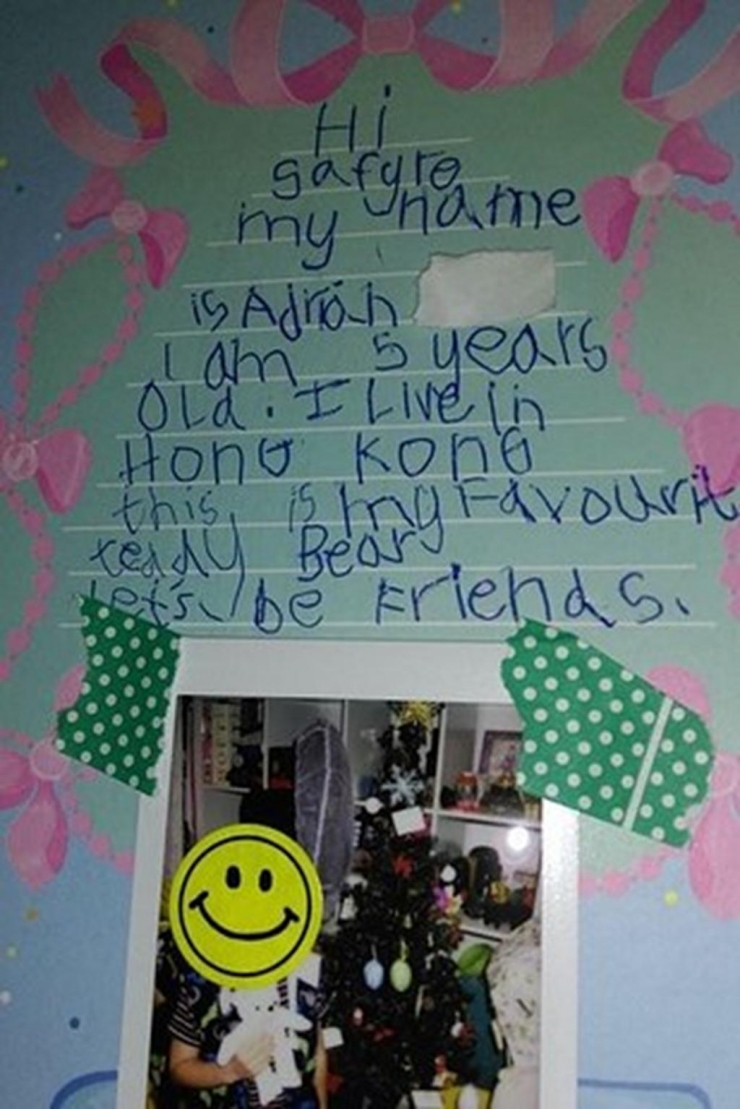 Hi
gafyro
my name
is Adrian
I am 5 years
Old. I Live in
Hong Kong
this is my Favourit
teady Bear
Let's be Friends.